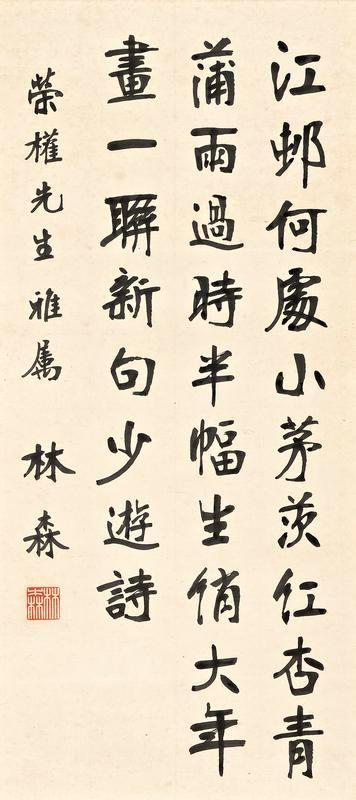 江邨何處小茅茨红杏青
蒲雨過時半幅生俏大年
畫一聯新句少遊詩
榮權先生雅属
林森
林森